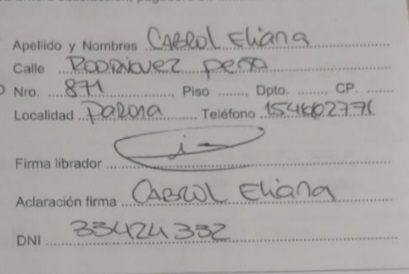 Apellido y Nombres CABROL Eliana
Calle RODRIGUEZ peña
Nro. 871, Piso ......., Dpto. ......., CP. .......
Localidad parana Teléfono 154602771
Firma librador
Aclaración firma CABROL Eliana
DNI 33424332